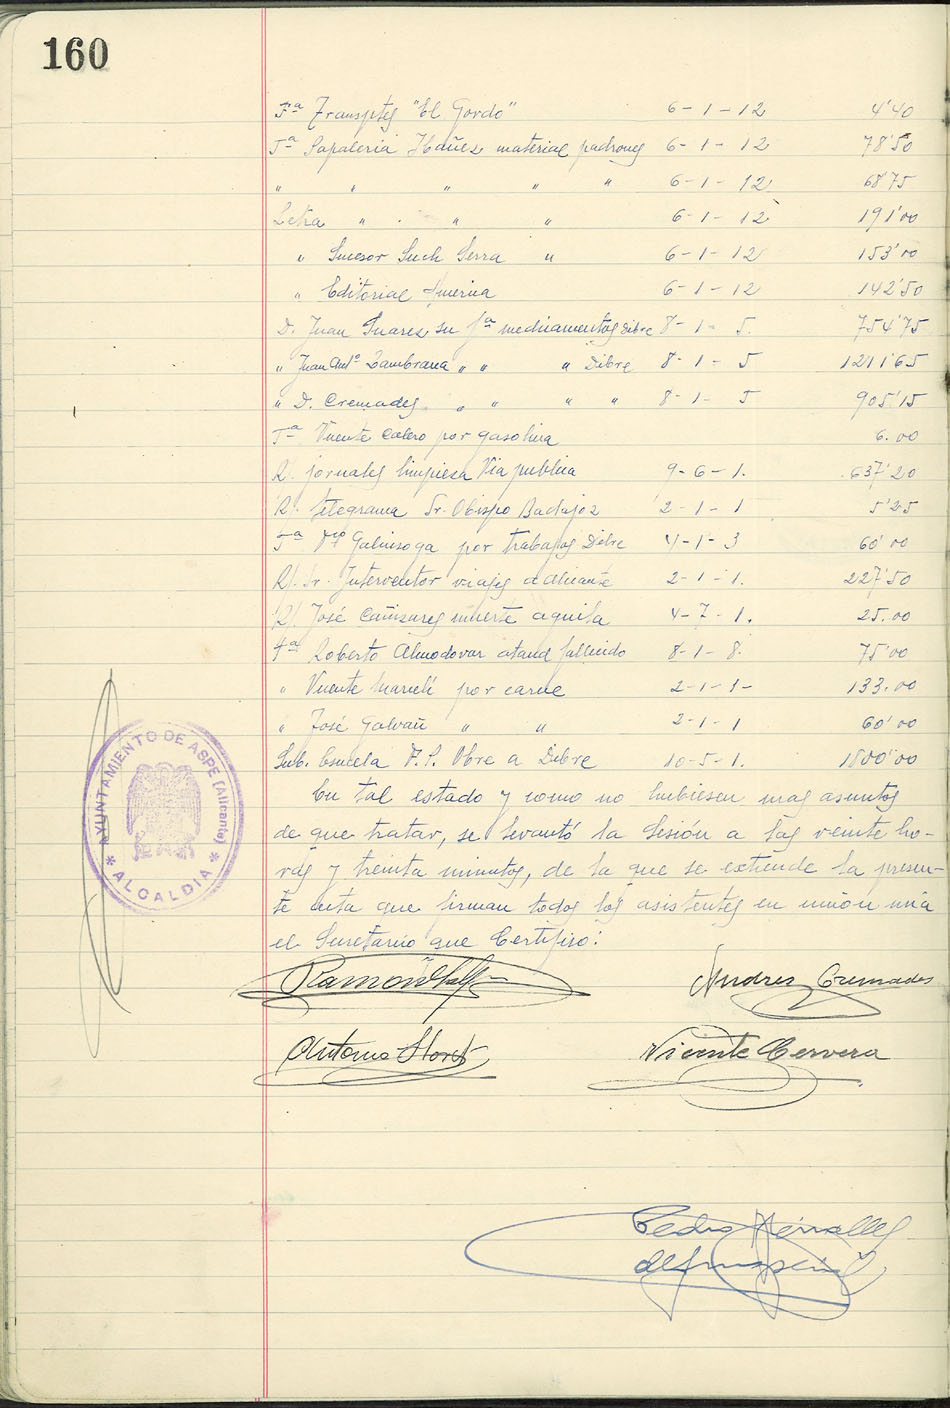 160
Fª Transptes "El Gordo" 6-1-12 4'40
Fª Papaleria Ibañez material padrones 6-1-12 78'50
" " " " " 6-1-12 68'75
Letra " " " 6-1-12 191'00
" Sucesor Such Serra " 6-1-12 153'00
" Editorial America 6-1-12 142'50
D. Juan Suarez su fª medicamentos Dibre 8-1-5. 754'75
" Juan Antº Zambrana " " " Dibre 8-1-5 1211'65
" D. Cremades " " " " 8-1-5 905'15
Fª Vicente Calero por gasolina 6.00
R/. jornales limpiesa Via publica 9-6-1. 637'20
R/. telegrama Sr. Obispo Badajoz 2-1-1 5'25
Fª Galinsoga por trabajos Dibre 4-1-3 60'00
R/. Sr. Interventor viajes a Alicante 2-1-1. 227'50
R/. José Cañizares muerte aguila 4-7-1. 25.00
Fª Roberto Almodovar ataud fallecido 8-1-8. 75'00
" Vicente por carne 2-1-1- 133.00
" José Galvañ " " 2-1-1 60'00
Sub. Escuela F.P. Obre a Dibre 10-5-1. 1800'00
En tal estado y como no hubiesen mas asuntos
de que tratar, se levantó la Sesión a las veinte ho-
ras y treinta minutos, de la que se extiende la presen-
te acta que firman todos los asistentes en unión mia
el Secretario que Certifico:
AYUNTAMIENTO DE ASPE (Alicante)
* ALCALDIA *
Ramon
Andres Cremades
Antonio
Vicente Cervera
Pedro